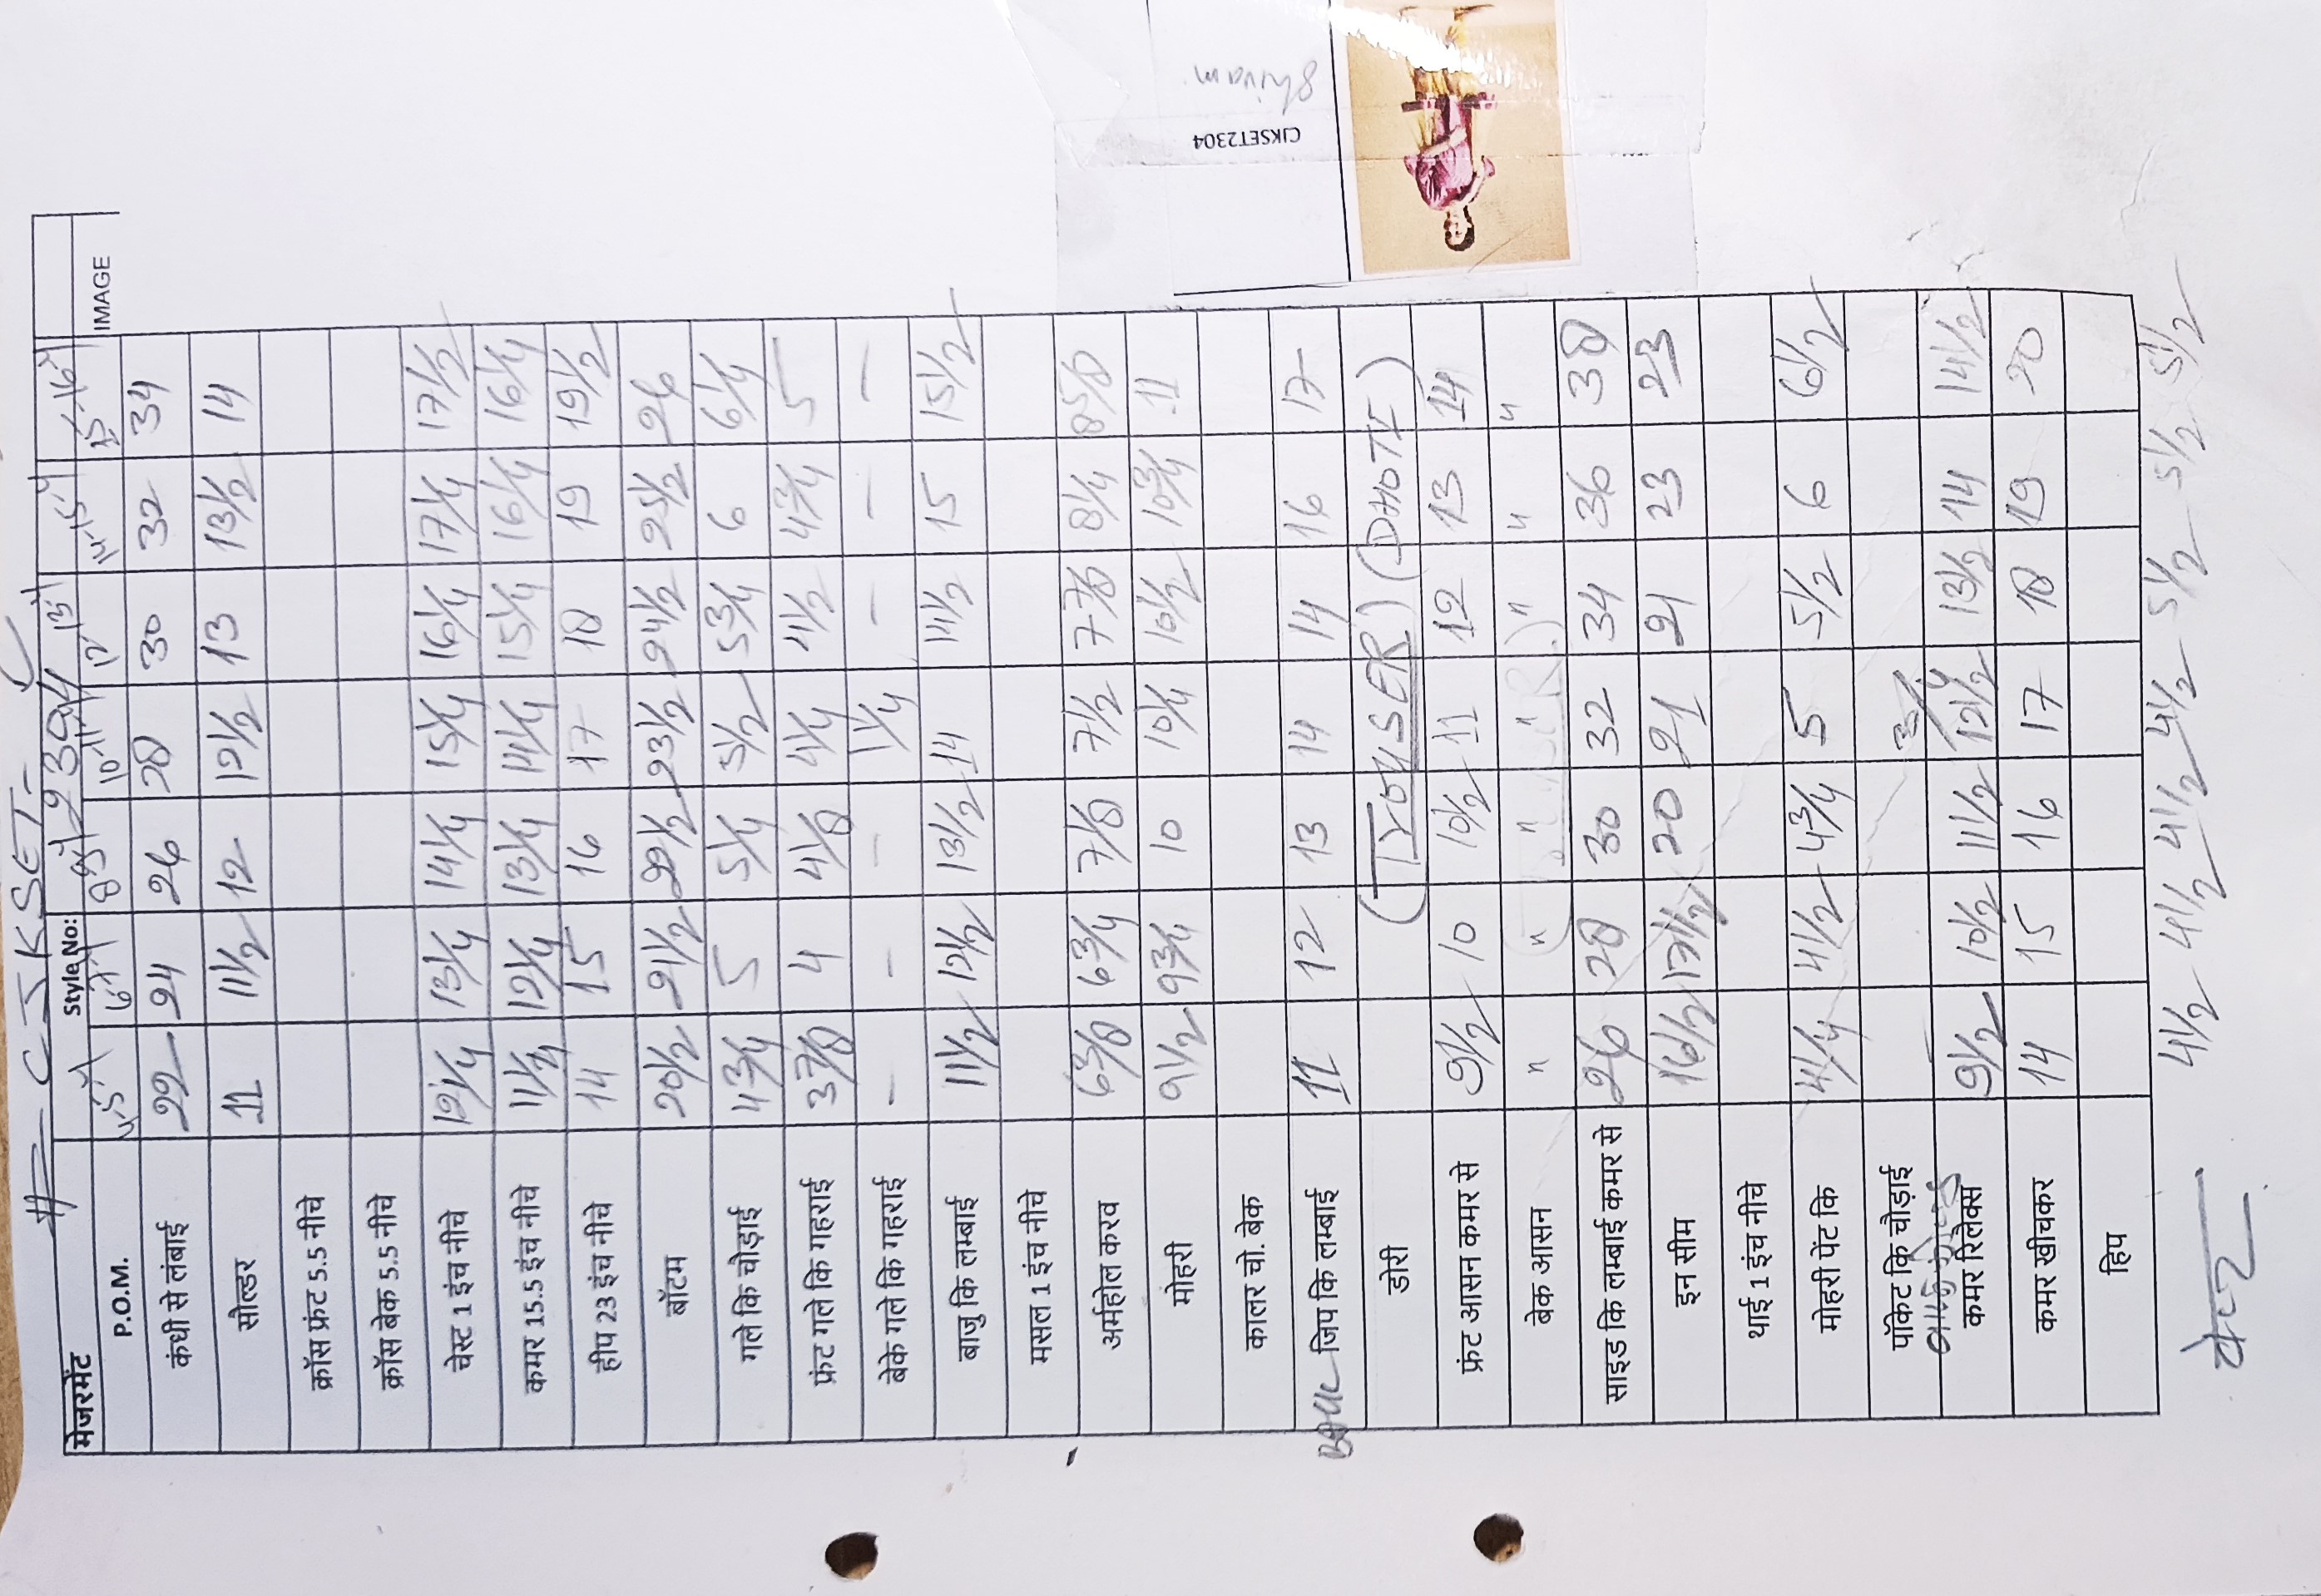 # CJKSET- C
मेजरमेंट Style No: 2304
P.O.M. 4-5 6-7 8-9 10-11 12-13 14-15 15-16 IMAGE
कंधी से लंबाई 22 24 26 28 30 32 34
सौल्डर 11 11 1/2 12 12 1/2 13 13 1/2 14
क्रॉस फ्रंट 5.5 नीचे
क्रॉस बेक 5.5 नीचे
चेस्ट 1 इंच नीचे 12 1/4 13 1/4 14 1/4 15 1/4 16 1/4 17 1/4 17 1/2
कमर 15.5 इंच नीचे 11 1/4 12 1/4 13 1/4 14 1/4 15 1/4 16 1/4 16 1/4
हीप 23 इंच नीचे 14 15 16 17 18 19 19 1/2
बॉटम 20 1/2 21 1/2 22 1/2 23 1/2 24 1/2 25 1/2 26
गले कि चौड़ाई 4 3/4 5 5 1/4 5 1/2 5 3/4 6 6 1/4
फ्रंट गले कि गहराई 3 7/8 4 4 1/8 4 1/4 4 1/2 4 3/4 5
बेके गले कि गहराई - - - 1 1/4 - - -
बाजु कि लम्बाई 11 1/2 12 1/2 13 1/2 14 14 1/2 15 15 1/2
मसल 1 इंच नीचे
अर्महोल करव 6 3/8 6 3/4 7 1/8 7 1/2 7 7/8 8 1/4 8 5/8
मोहरी 9 1/2 9 3/4 10 10 1/4 10 1/2 10 3/4 11
कालर चो. बेक
जिप कि लम्बाई 11 12 13 14 14 16 17
डोरी (TROUSER) (DHOTI)
फ्रंट आसन कमर से 9 1/2 10 10 1/2 11 12 13 14
बेक आसन " " " " " " "
साइड कि लम्बाई कमर से 26 28 30 32 34 36 38
इन सीम 16 1/2 17 1/2 20 21 21 23 23
थाई 1 इंच नीचे
मोहरी पेंट कि 4 1/4 4 1/2 4 3/4 5 5 1/2 6 6 1/2
पॉकेट कि चौड़ाई
कमर रिलैक्स 9 1/2 10 1/2 11 1/2 12 1/2 13 1/2 14 14 1/2
कमर खीचकर 14 15 16 17 18 19 20
हिप
4 1/2 4 1/2 4 1/2 4 1/2 5 1/2 5 1/2 5 1/2
CJKSET2304
Shivam